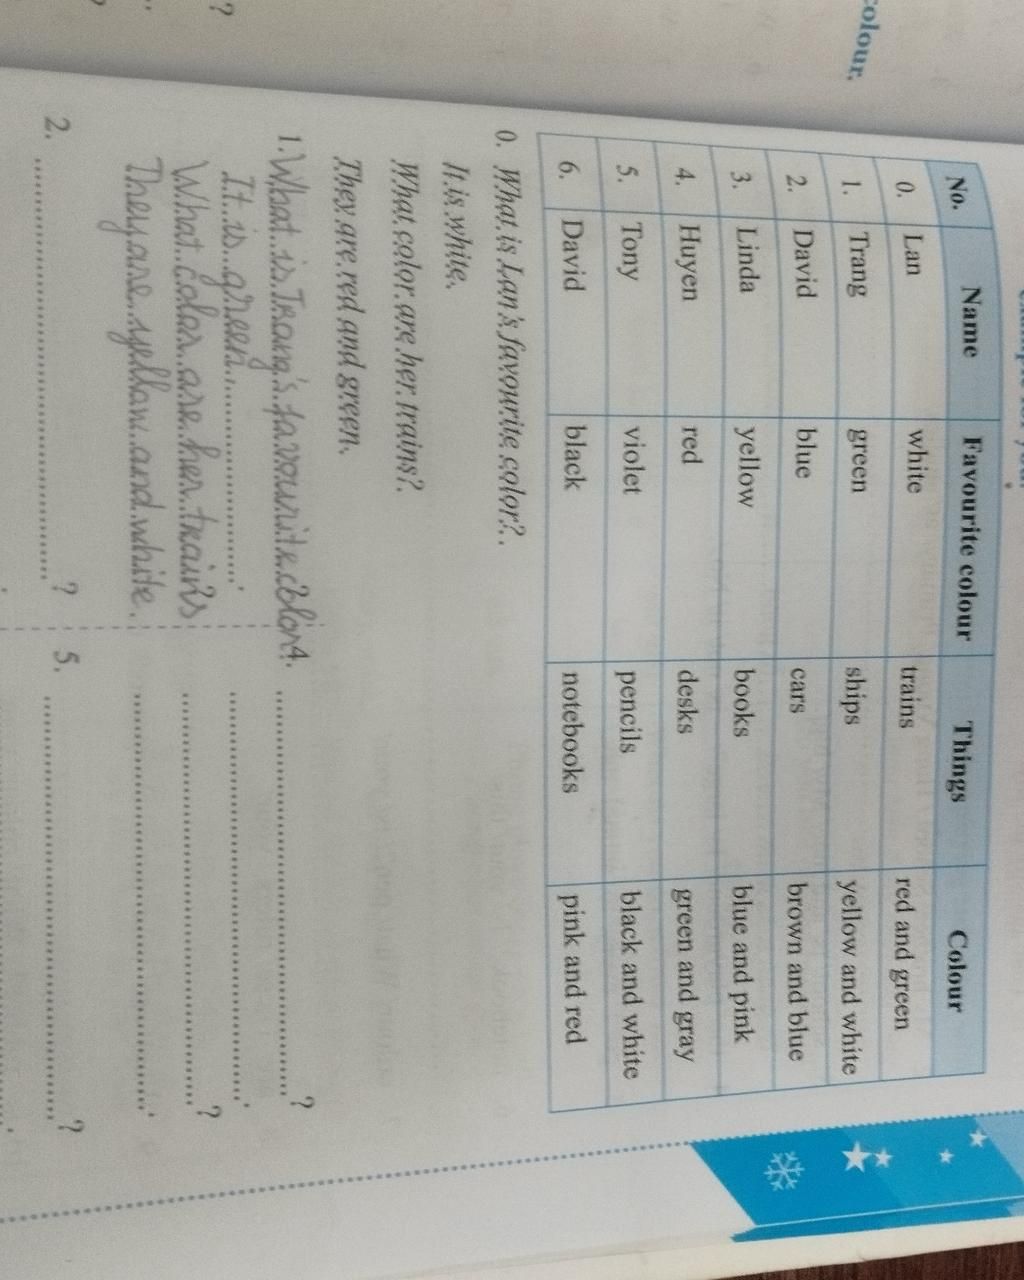 colour.
?
No. Name Favourite colour Things Colour
0. Lan white trains red and green
1. Trang green ships yellow and white
2. David blue cars brown and blue
3. Linda yellow books blue and pink
4. Huyen red desks green and gray
5. Tony violet pencils black and white
6. David black notebooks pink and red
0. What is Lan's favourite color?
It is white.
What color are her trains?
They are red and green.
1. What is Trang's favourite color
It is green
What color are her trains
They are yellow and white.
4. ?
.
?
.
2. ?
5. ?